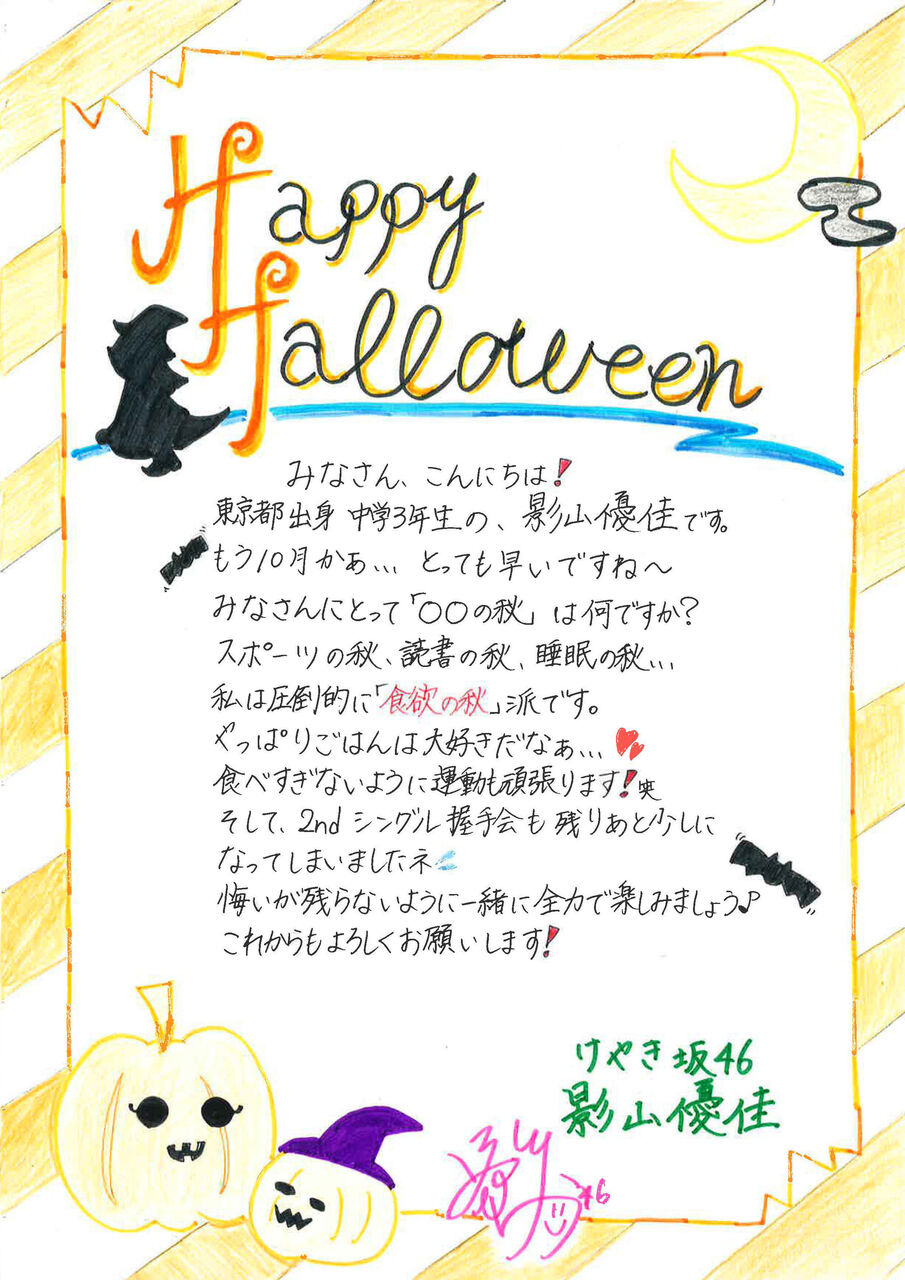 Happy
Halloween
みなさん、こんにちは!
東京都出身 中学3年生の、影山優佳です。
もう10月かぁ... とっても早いですね〜
みなさんにとって「○○の秋」は何ですか?
スポーツの秋、読書の秋、睡眠の秋...
私は圧倒的に「食欲の秋」派です。
やっぱりごはんは大好きだなぁ...
食べすぎないように運動も頑張ります!笑
そして、2nd シングル握手会も残りあと少しに
なってしまいましたネ
悔いが残らないように一緒に全力で楽しみましょう♪
これからもよろしくお願いします!
けやき坂46
影山優佳
46